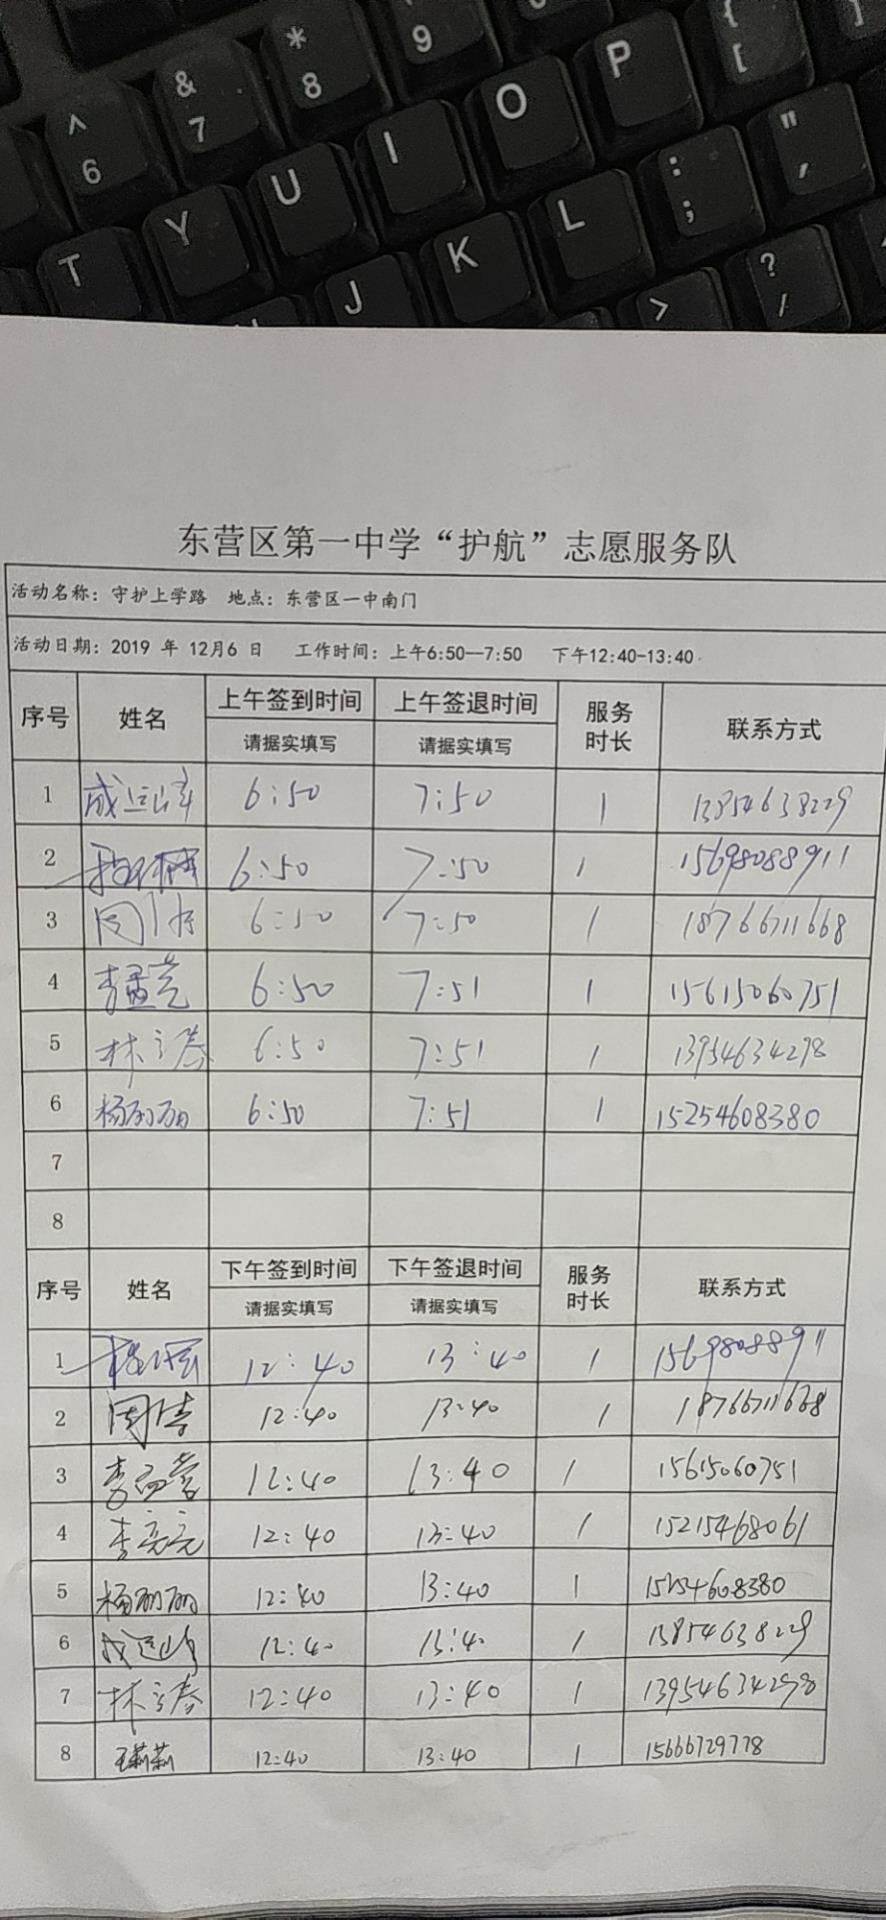 ^
6
&
7
*
8
9
{
[
]
T
Y
U
I
O
P
J
K
L
:
;
"
,
>
?
/
东营区第一中学“护航”志愿服务队
活动名称：守护上学路 地点：东营区一中南门
活动日期：2019 年 12月6 日 工作时间：上午6:50—7:50 下午12:40-13:40
序号 姓名 上午签到时间 上午签退时间 服务时长 联系方式
请据实填写 请据实填写
1 成运峰 6:50 7:50 1 13854638229
2 6:50 7:50 1 15698088911
3 周倩 6:50 7:50 1 18766711668
4 李孟莹 6:50 7:51 1 15615060751
5 林立春 6:50 7:51 1 13954634298
6 杨丽丽 6:50 7:51 1 15254608380
7
8
序号 姓名 下午签到时间 下午签退时间 服务时长 联系方式
请据实填写 请据实填写
1 12:40 13:40 1 15698088911
2 周倩 12:40 13:40 1 18766711668
3 李孟莹 12:40 13:40 1 15615060751
4 李亮亮 12:40 13:40 1 15215468061
5 杨丽丽 12:40 13:40 1 15254608380
6 成运峰 12:40 13:40 1 13854638229
7 林立春 12:40 13:40 1 13954634298
8 王莉莉 12:40 13:40 1 15666729778